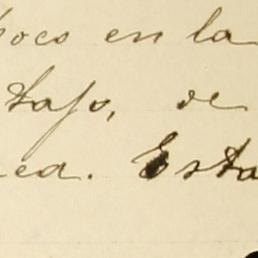 poco en la
tajo, de
ea. Esta